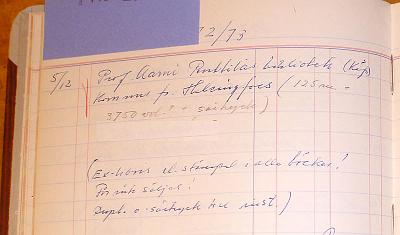 72/73
5/12 Prof Aarni Penttiläs bibliotek (Köp)
kommer fr. Helsingfors (125 m.
3750 vol. ? + särtryck)
(Ex-libris el. stämpel i alla böcker!
Får inte säljas!
Dupl. o. särtryck till inst.)